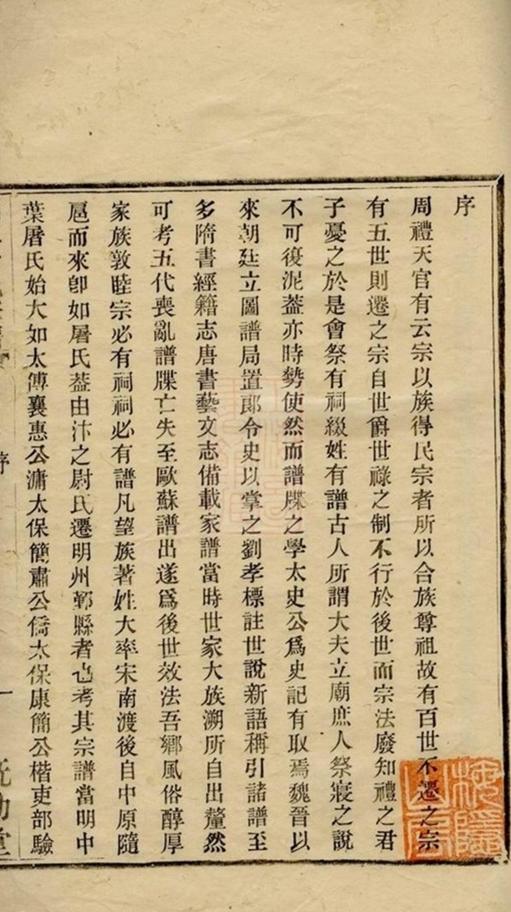 序
周禮天官有云宗以族得民宗者所以合族尊祖故有百世不遷之宗
有五世則遷之宗自世爵世祿之制不行於後世而宗法廢知禮之君
子憂之於是會祭有祠綴姓有譜古人所謂大夫立廟庶人祭寢之說
不可復泥葢亦時勢使然而譜牒之學太史公爲史記有取焉魏晉以
來朝廷立圖譜局置郎令史以掌之劉孝標註世說新語稱引諸譜至
多隋書經籍志唐書藝文志備載家譜當時世家大族溯所自出釐然
可考五代喪亂譜牒亡失至歐蘇譜出遂爲後世效法吾鄉風俗醇厚
家族敦睦宗必有祠祠必有譜凡望族著姓大率宋南渡後自中原隨
扈而來卽如屠氏葢由汴之尉氏遷明州鄞縣者也考其宗譜當明中
葉屠氏始大如太傅襄惠公滽太保簡肅公僑太保康簡公楷吏部驗
序
一